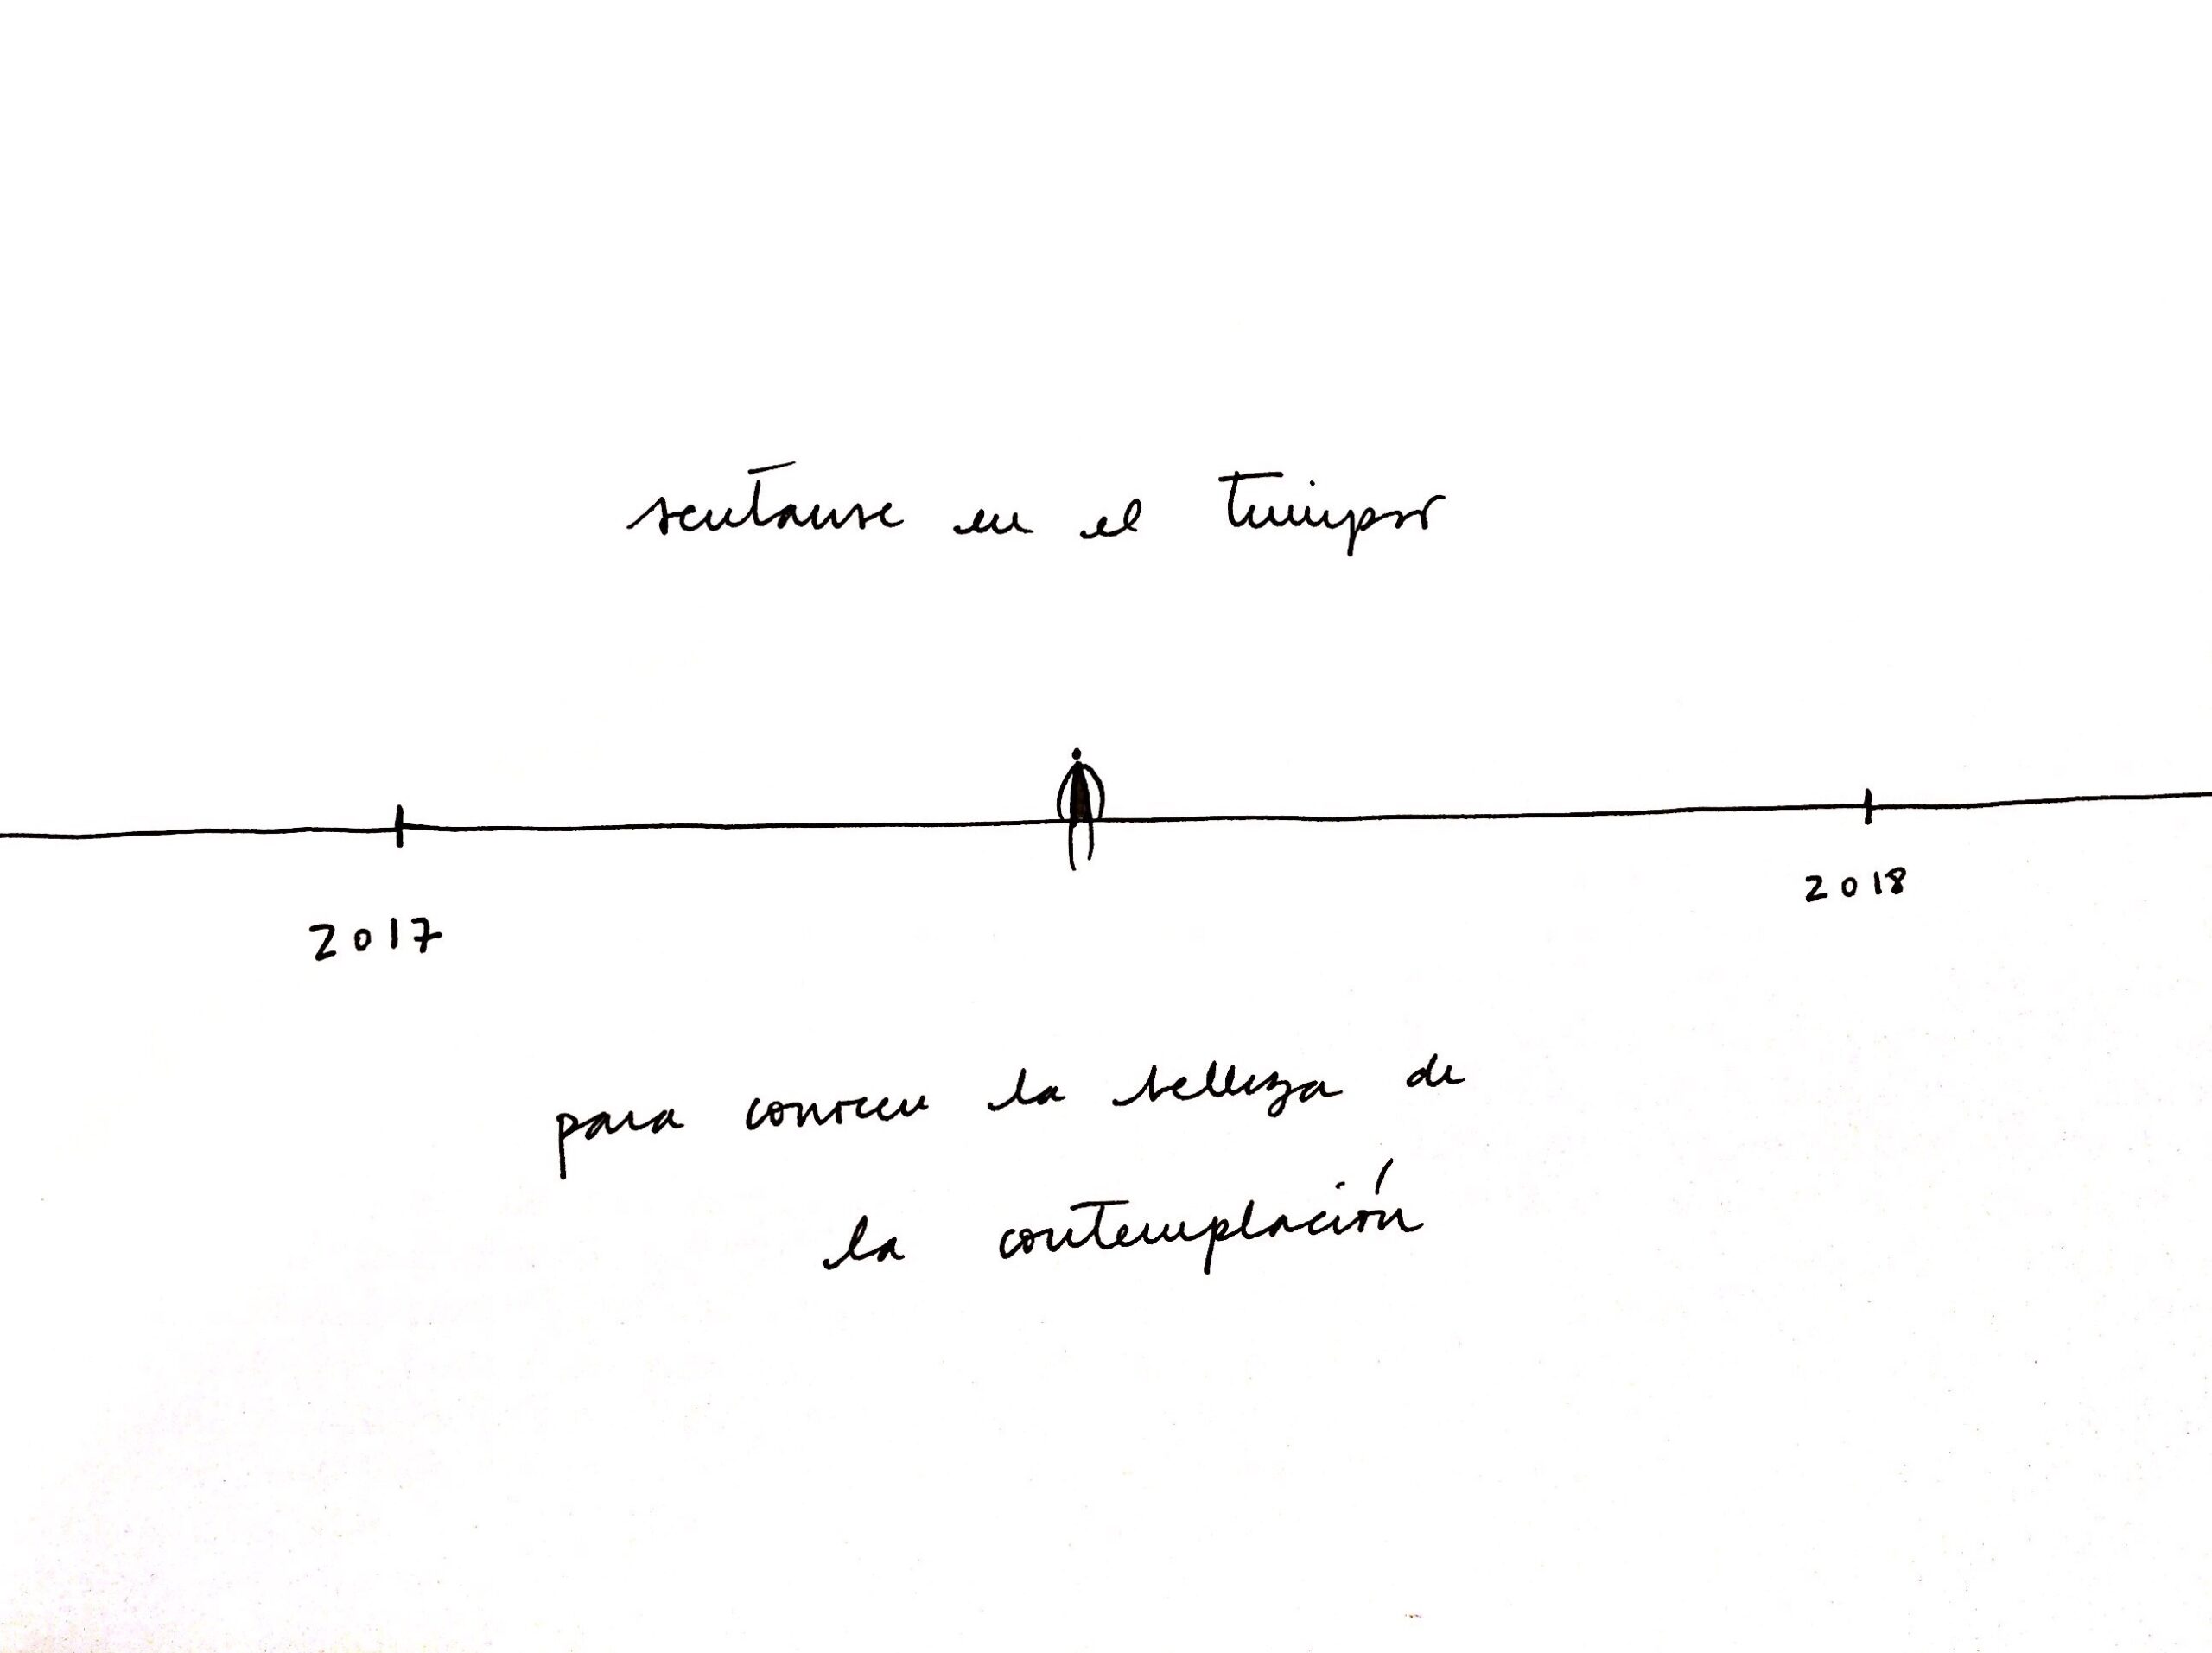 sentarse en el tiempo
2017
2018
para conocer la belleza de
la contemplación